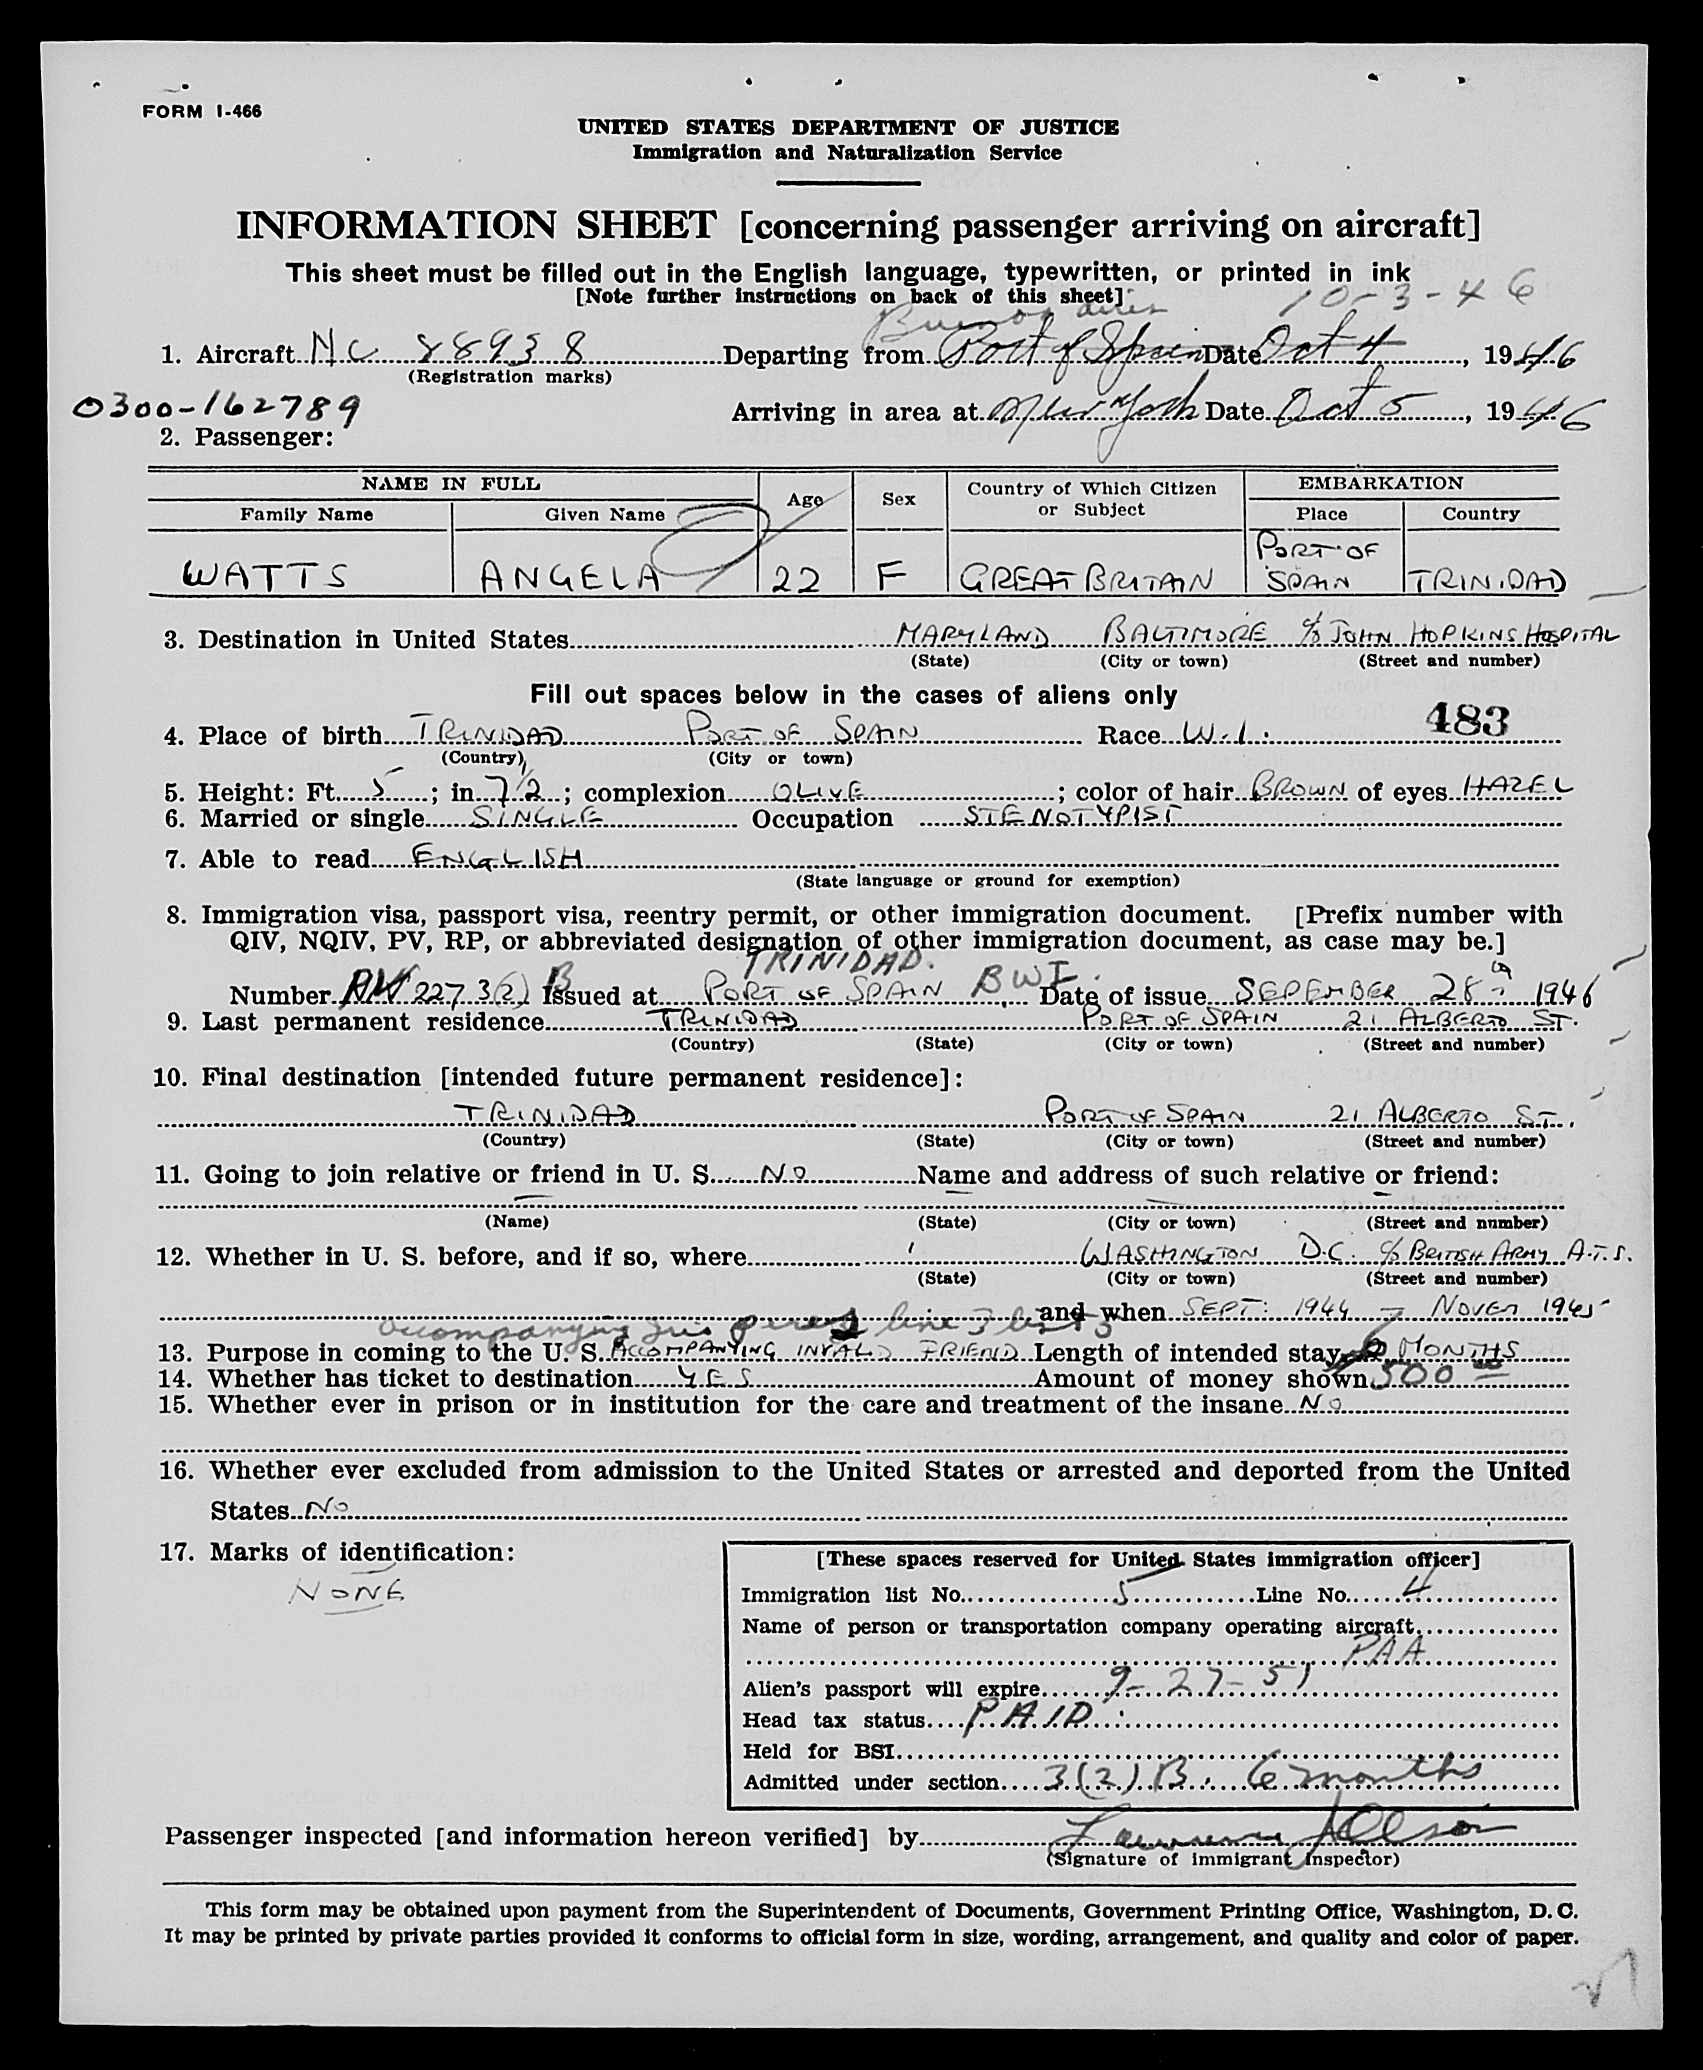 FORM I-466
UNITED STATES DEPARTMENT OF JUSTICE
Immigration and Naturalization Service
INFORMATION SHEET [concerning passenger arriving on aircraft]
This sheet must be filled out in the English language, typewritten, or printed in ink
[Note further instructions on back of this sheet]
Buenos Aires 10-3-46
1. Aircraft NC 88938 Departing from Port of Spain Date Oct 4, 1946
(Registration marks)
0300-162789 Arriving in area at New York Date Oct 5, 1946
2. Passenger:
NAME IN FULL Age Sex Country of Which Citizen or Subject EMBARKATION
Family Name Given Name Place Country
WATTS ANGELA 22 F GREAT BRITAIN PORT OF SPAIN TRINIDAD
3. Destination in United States MARYLAND BALTIMORE c/o JOHN HOPKINS HOSPITAL
(State) (City or town) (Street and number)
Fill out spaces below in the cases of aliens only
483
4. Place of birth TRINIDAD PORT OF SPAIN Race W.I.
(Country) (City or town)
5. Height: Ft. 5; in. 7 1/2; complexion OLIVE; color of hair BROWN of eyes HAZEL
6. Married or single SINGLE Occupation STENOTYPIST
7. Able to read ENGLISH
(State language or ground for exemption)
8. Immigration visa, passport visa, reentry permit, or other immigration document. [Prefix number with
QIV, NQIV, PV, RP, or abbreviated designation of other immigration document, as case may be.]
TRINIDAD. BWI.
Number PV 227 3(2) B Issued at PORT OF SPAIN Date of issue SEPEMBER 28th 1946
9. Last permanent residence TRINIDAD PORT OF SPAIN 21 ALBERTO ST.
(Country) (State) (City or town) (Street and number)
10. Final destination [intended future permanent residence]:
TRINIDAD PORT OF SPAIN 21 ALBERTO ST.
(Country) (State) (City or town) (Street and number)
11. Going to join relative or friend in U. S. NO Name and address of such relative or friend:
(Name) (State) (City or town) (Street and number)
12. Whether in U. S. before, and if so, where WASHINGTON D.C. c/o BRITISH ARMY A.T.S.
(State) (City or town) (Street and number)
and when SEPT: 1944 - NOVEM 1945
accompanying line 3 list 5
13. Purpose in coming to the U. S. ACCOMPANYING INVALID FRIEND Length of intended stay 6 MONTHS
14. Whether has ticket to destination YES Amount of money shown 500 00
15. Whether ever in prison or in institution for the care and treatment of the insane NO
16. Whether ever excluded from admission to the United States or arrested and deported from the United
States NO
17. Marks of identification:
NONE
[These spaces reserved for United States immigration officer]
Immigration list No. 5 Line No. 4
Name of person or transportation company operating aircraft
PAA
Alien's passport will expire 9-27-51
Head tax status PAID
Held for BSI
Admitted under section 3(2) B. 6 months
Passenger inspected [and information hereon verified] by Lawrence J Olson
(Signature of immigrant inspector)
This form may be obtained upon payment from the Superintendent of Documents, Government Printing Office, Washington, D. C.
It may be printed by private parties provided it conforms to official form in size, wording, arrangement, and quality and color of paper.